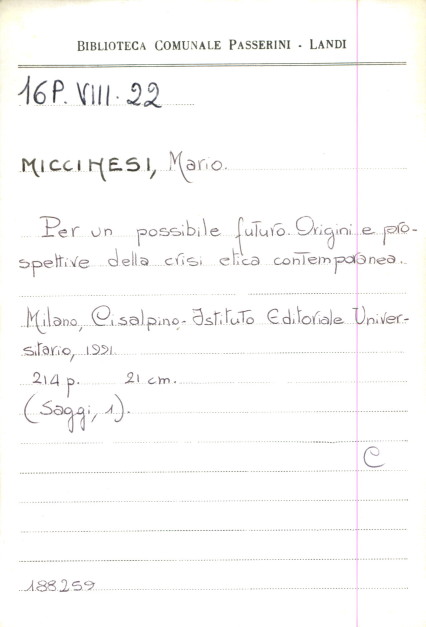 BIBLIOTECA COMUNALE PASSERINI - LANDI
16P. VIII. 22
MICCINESI, Mario.
Per un possibile futuro. Origini e pro-
spettive della crisi etica contemporanea.
Milano, Cisalpino-Istituto Editoriale Univer-
sitario, 1991.
214 p. 21 cm.
(Saggi, 1).
C
188259